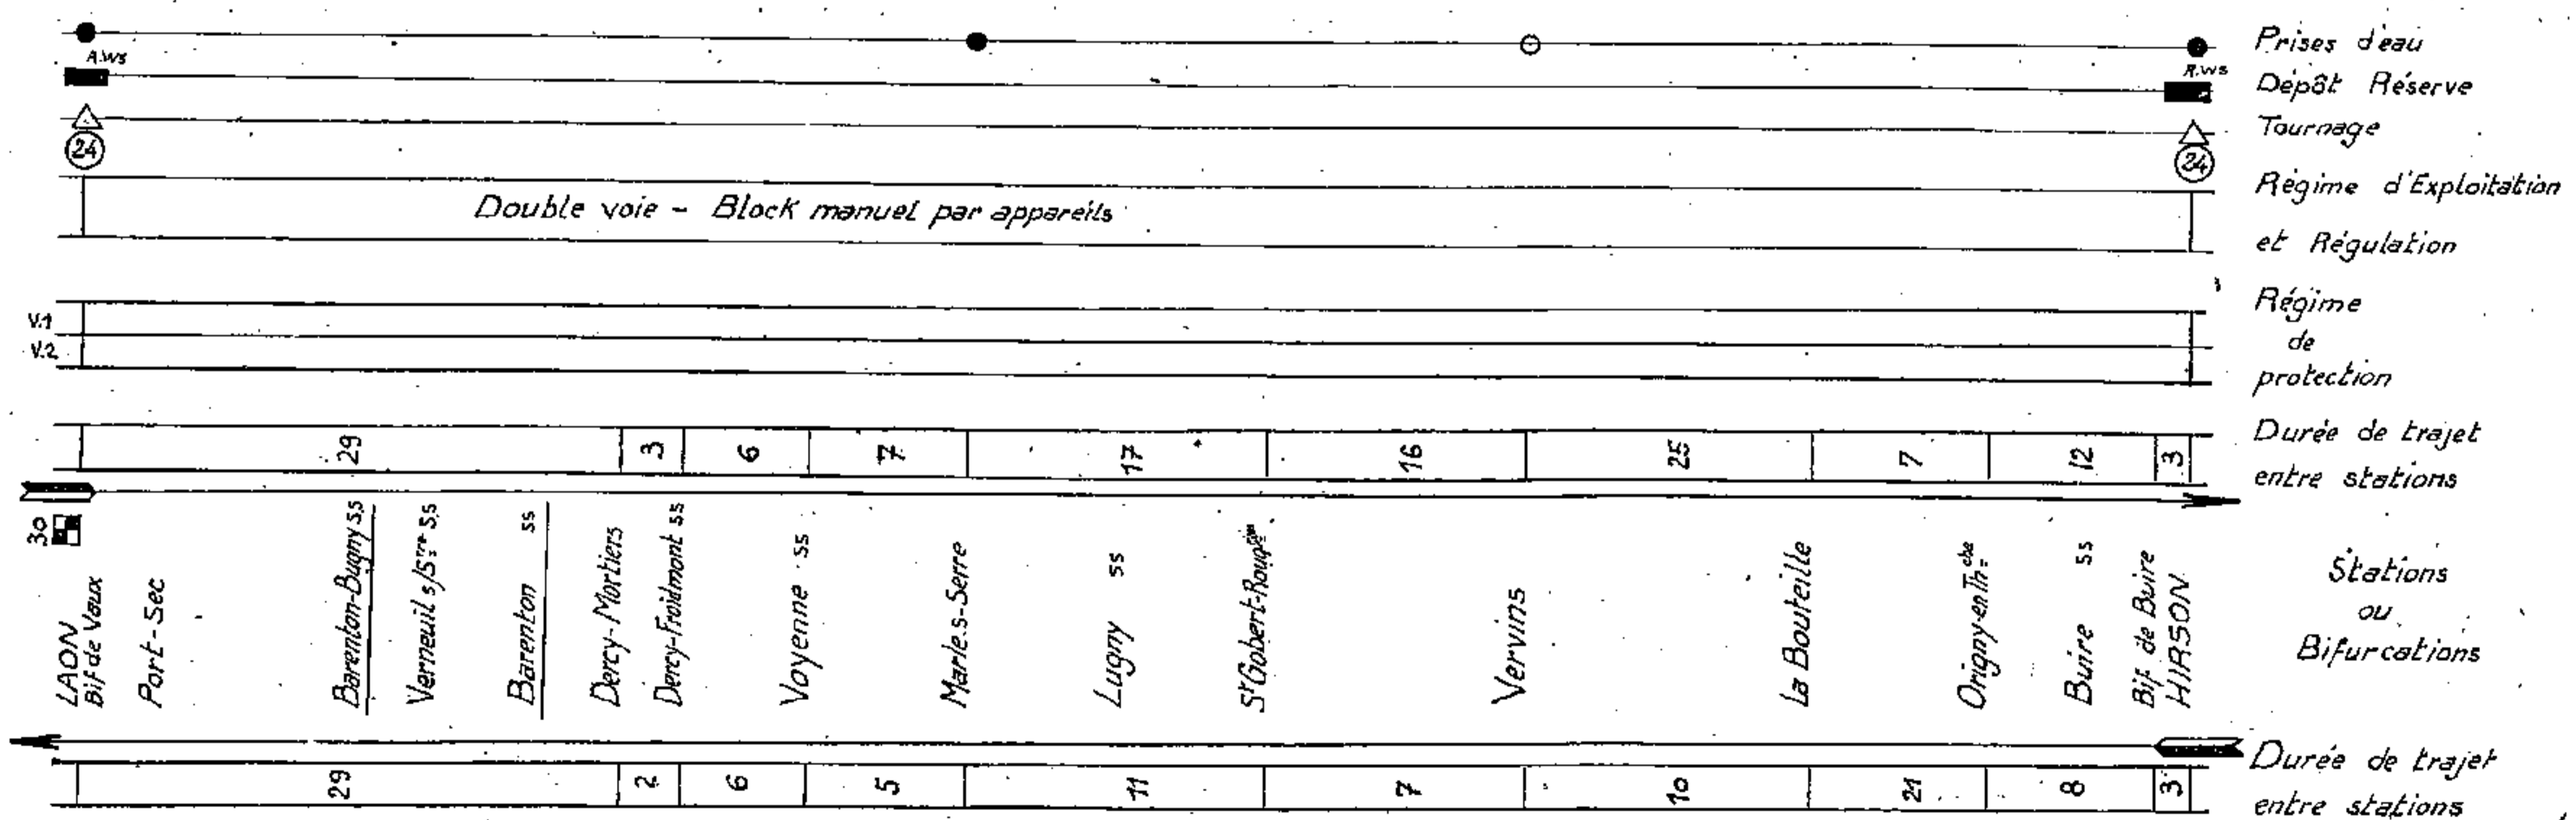 Prises d'eau
A.WS
R.WS
Dépôt Réserve
Tournage
24
24
Régime d'Exploitation
et Régulation
Double voie - Block manuel par appareils
V.1
V.2
Régime
de
protection
29 3 6 7 17 16 25 7 12 3
Durée de trajet
entre stations
30
LAON
Bif de Vaux
Port-Sec
Barenton-Bugny ss
Verneuil s/Sʳʳᵉ ss
Barenton ss
Dercy-Mortiers
Dercy-Froidmont ss
Voyenne ss
Marle.s-Serre
Lugny ss
Sᵗ Gobert-Roug
Vervins
La Bouteille
Origny-en Thᶜʰᵉ
Buire ss
Bif de Buire
HIRSON
Stations
ou
Bifurcations
29 2 6 5 11 7 10 21 8 3
Durée de trajet
entre stations